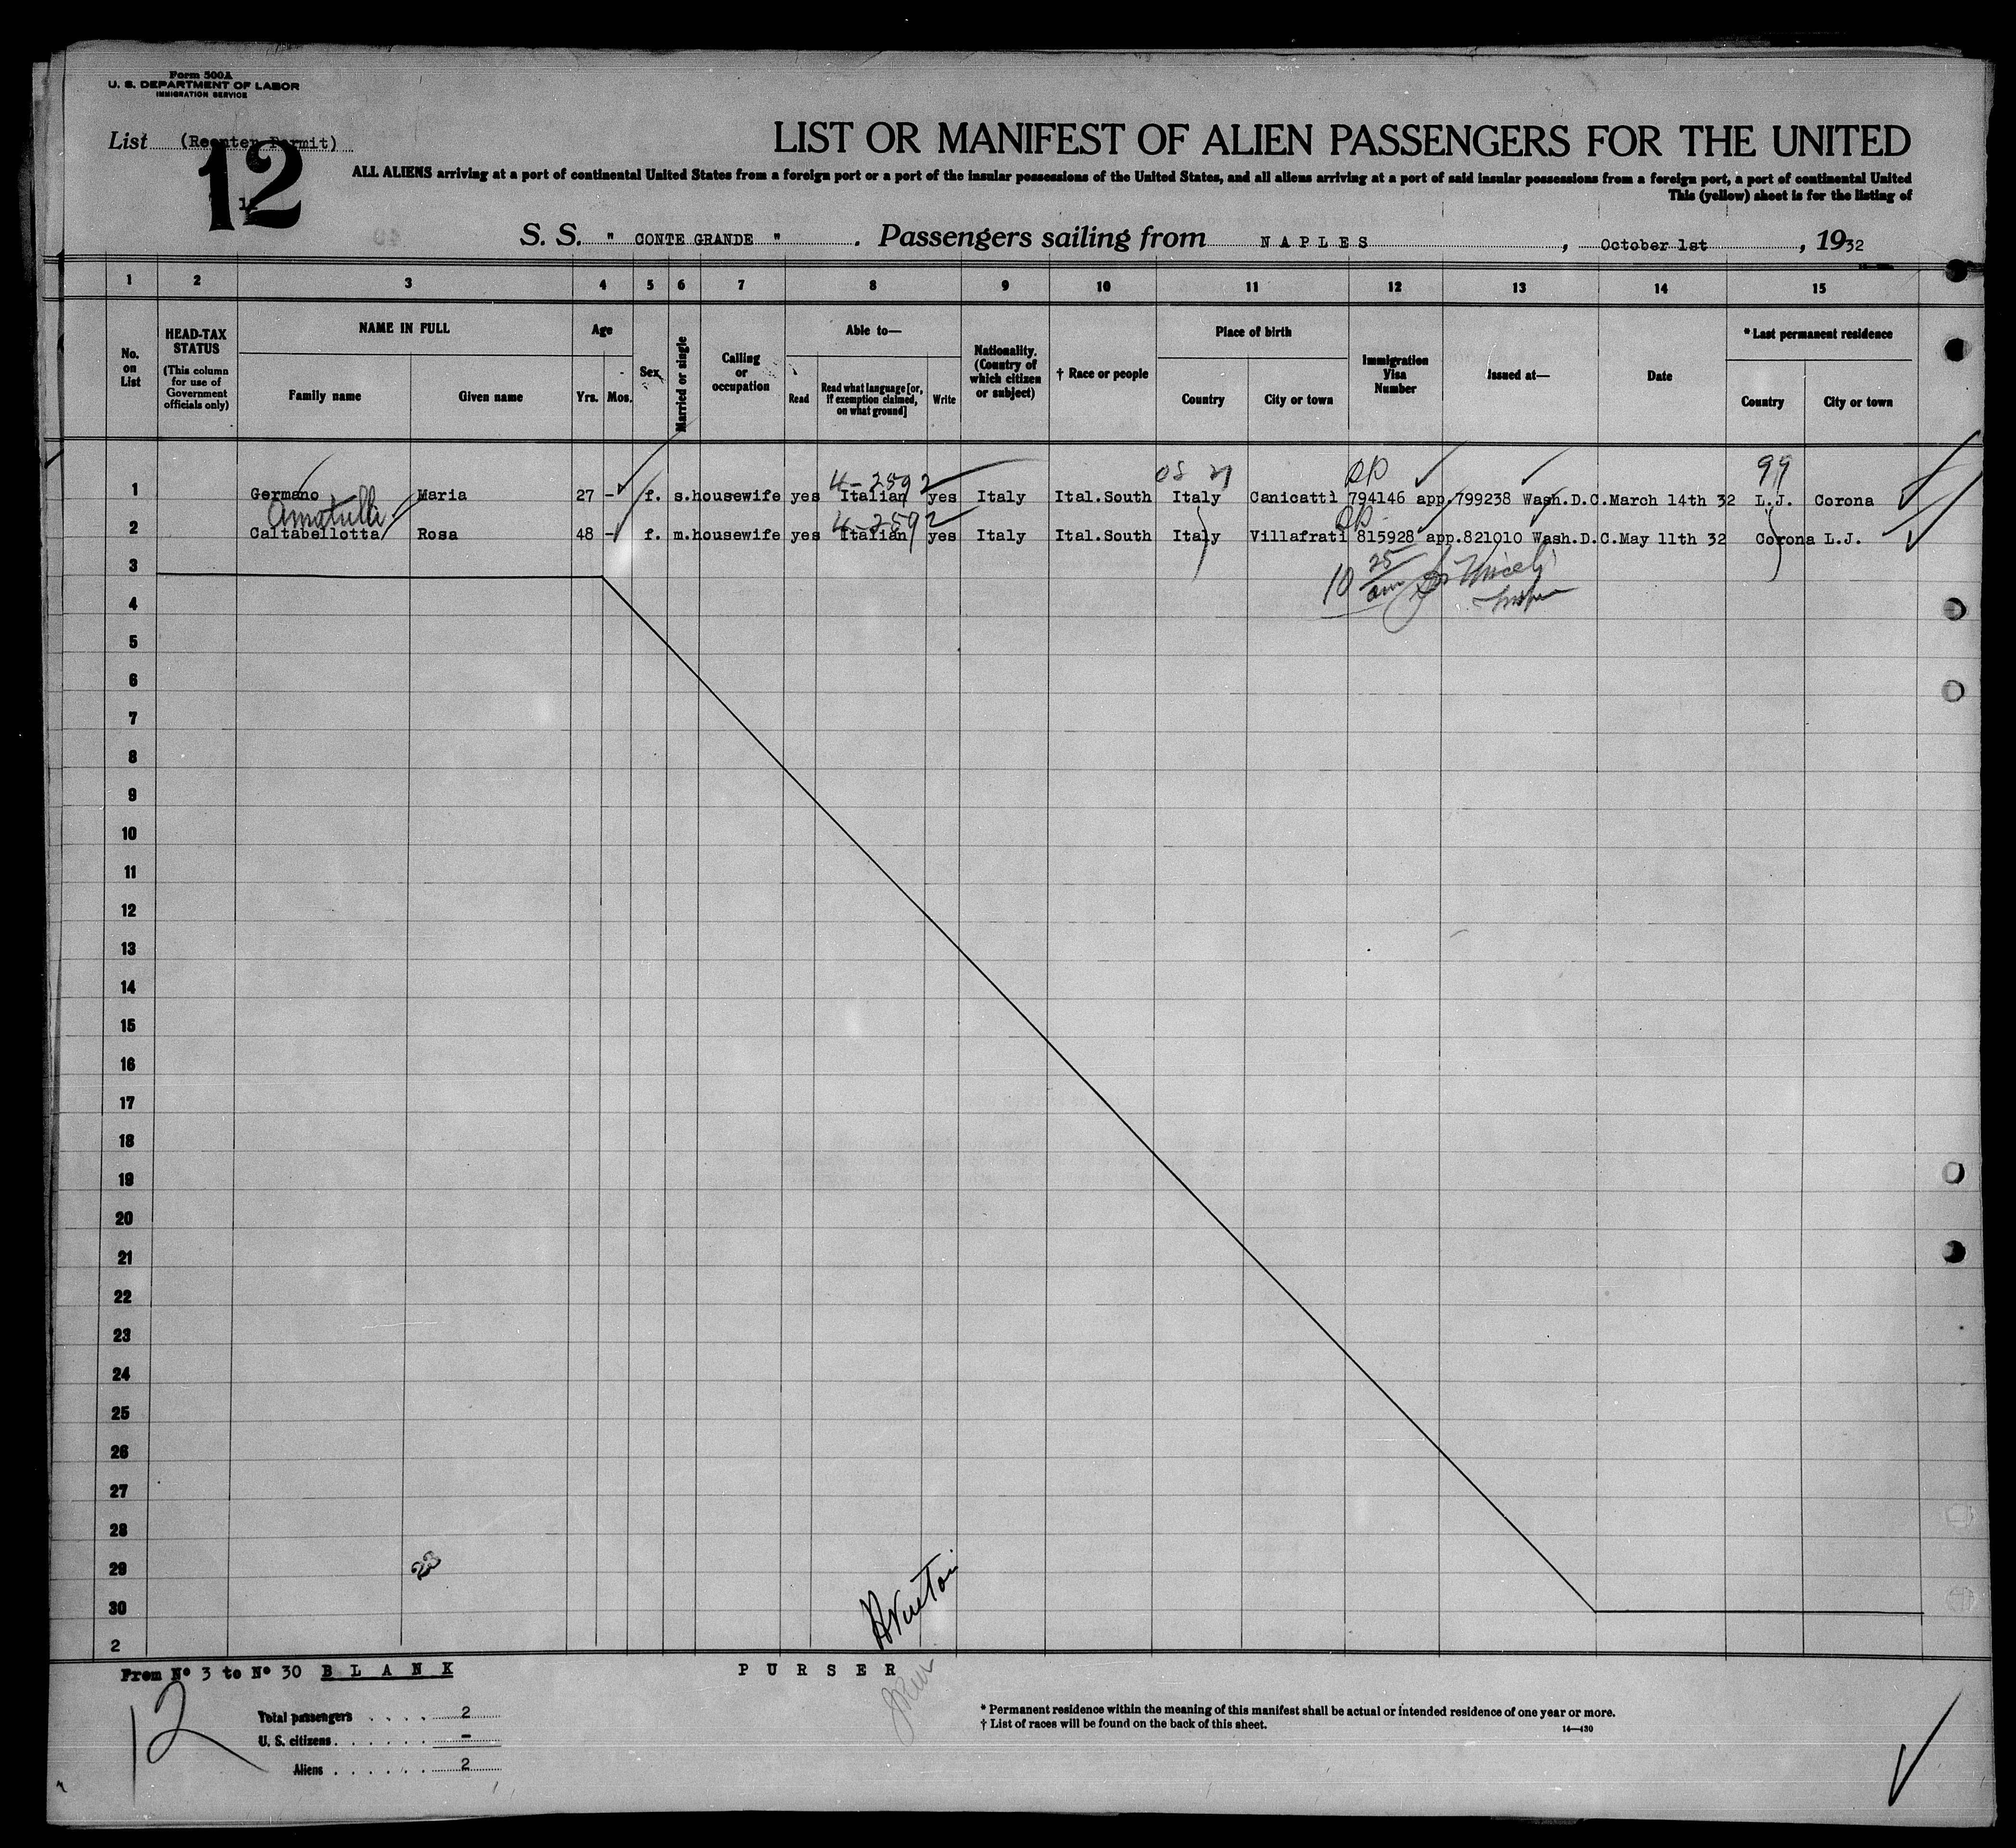 Form 500A
U. S. DEPARTMENT OF LABOR
IMMIGRATION SERVICE
List (Reenter Permit)
12
LIST OR MANIFEST OF ALIEN PASSENGERS FOR THE UNITED
ALL ALIENS arriving at a port of continental United States from a foreign port or a port of the insular possessions of the United States, and all aliens arriving at a port of said insular possessions from a foreign port, a port of continental United
This (yellow) sheet is for the listing of
S. S. " CONTE GRANDE " . Passengers sailing from NAPLES , October 1st , 1932
1 2 3 4 5 6 7 8 9 10 11 12 13 14 15
No. on List
HEAD-TAX STATUS
(This column for use of Government officials only)
NAME IN FULL
Family name Given name
Age
Yrs. Mos.
Sex
Married or single
Calling or occupation
Able to—
Read
Read what language [or, if exemption claimed, on what ground]
Write
Nationality. (Country of which citizen or subject)
† Race or people
Place of birth
Country City or town
Immigration Visa Number
Issued at—
Date
* Last permanent residence
Country City or town
4-2592 RP 99
1 Germano Maria 27 - f. s. housewife yes Italian yes Italy Ital.South Italy Canicatti 794146 app.799238 Wash.D.C.March 14th 32 L.J. Corona
Amatulli 4-2592 RP
2 Caltabellotta Rosa 48 - f. m. housewife yes Italian yes Italy Ital.South Italy Villafrati 815928 app.821010 Wash.D.C.May 11th 32 Corona L.J.
10 25 am
3
4
5
6
7
8
9
10
11
12
13
14
15
16
17
18
19
20
21
22
23
24
25
26
27
28
29
30
2
From Nº 3 to Nº 30 BLANK
PURSER
12
Total passengers . . . . 2
U. S. citizens . . . . . . -
Aliens . . . . . . 2
* Permanent residence within the meaning of this manifest shall be actual or intended residence of one year or more.
† List of races will be found on the back of this sheet.
14—430